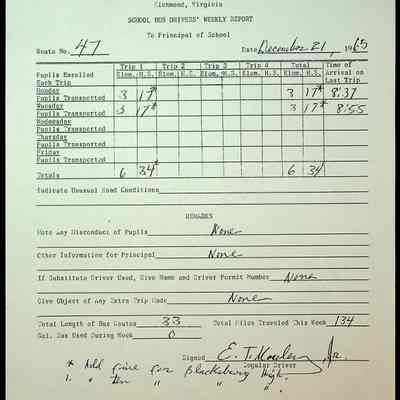 Richmond, Virginia
SCHOOL BUS DRIVERS' WEEKLY REPORT
To Principal of School
Route No. 47 Date December 21, 1965
Trip 1 Trip 2 Trip 3 Trip 4 Total Time of
Pupils Enrolled Elem. H.S. Elem. H.S. Elem. H.S. Elem. H.S. Elem. H.S. Arrival on
Each Trip Last Trip
Monday
Pupils Transported 3 17* 3 17* 8:37
Tuesday
Pupils Transported 3 17* 3 17* 8:55
Wednesday
Pupils Transported
Thursday
Pupils Transported
Friday
Pupils Transported
Totals 6 34* 6 34
Indicate Unusual Road Conditions
REMARKS
Note Any Misconduct of Pupils None
Other Information for Principal None
If Substitute Driver Used, Give Name and Driver Permit Number None
Give Object of Any Extra Trip Made None
Total Length of Bus Routes 33 Total Miles Traveled This Week 134
Gal. Gas Used During Week 0
Signed E. T. Jr.
Regular Driver
* Add five for Blacksburg High.
1. " Ten " " "